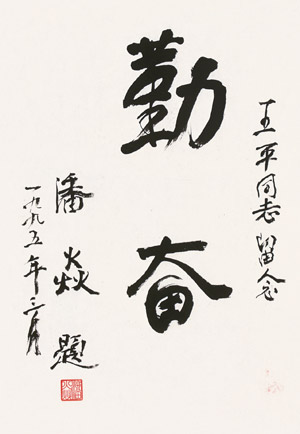 王平同志留念
勤奋
潘焱题
一九九五年三月